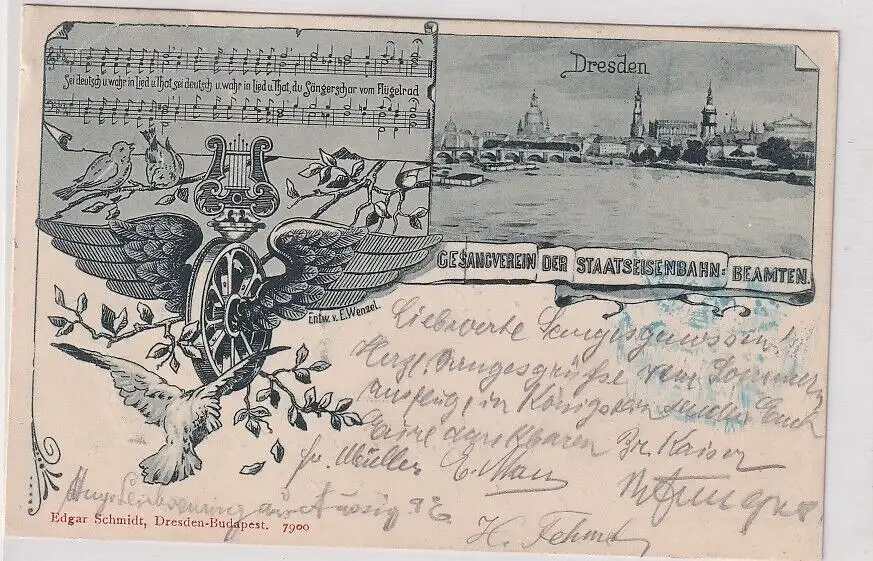 Sei deutsch u. wahr in Lied u. That, sei deutsch u. wahr in Lied u. That, du Sängerschar vom Flügelrad
Dresden
GESANGVEREIN DER STAATSEISENBAHN-BEAMTEN.
Entw. v. E. Wenzel.
Liebwerte Sangesgenossen!
Herzl. Sangesgrüße vom Sommer
ausfluge in Königstein senden Euch
Eure dankbaren Br. Kaiser
Fr. Müller E. May
aus Aussig
H.
Edgar Schmidt, Dresden-Budapest. 7900